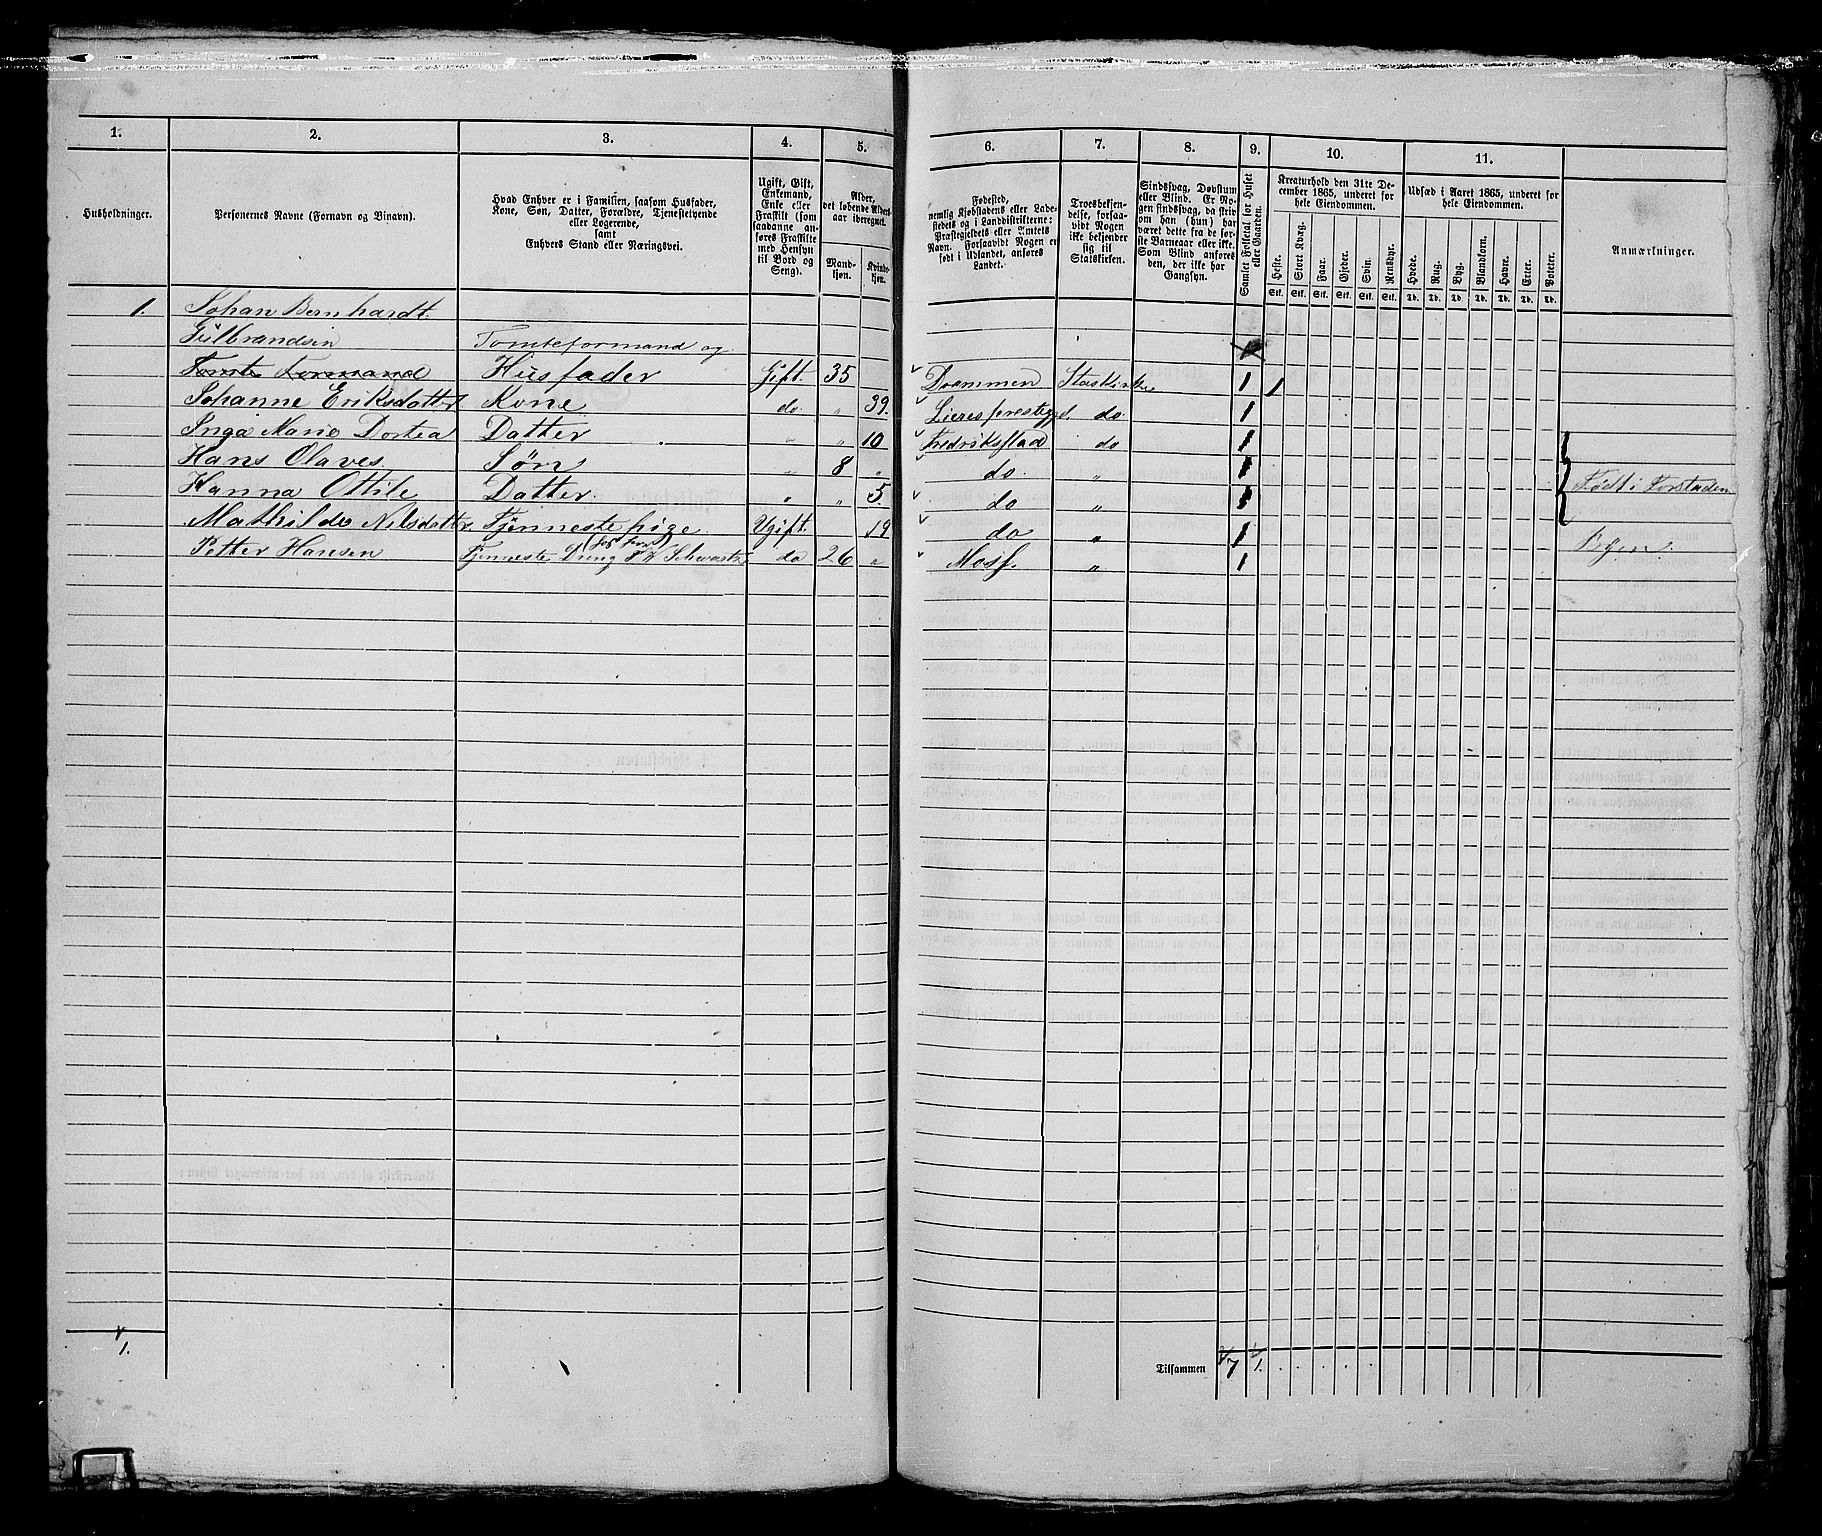 1.
2.
3.
4.
5.
6.
7.
8.
9.
10.
11.
Husholdninger.
Personernes Navne (Fornavn og Binavn).
Hvad Enhver er i Familien, saasom Husfader,
Kone, Søn, Datter, Forældre, Tjenestetyende
eller Logerende,
samt
Enhvers Stand eller Næringsvei.
Ugift, Gift,
Enkemand,
Enke eller
Fraskilt (som
saadanne an-
føres Fraskilte
med Hensyn
til Bord og
Seng).
Alder,
det løbende Alders-
aar iberegnet.
Mand-
kjøn.
Kvinde-
kjøn.
Fødested,
nemlig Kjøbstadens eller Lade-
stedets og i Landdistrikterne:
Præstegjeldets eller Amtets
Navn. Forsaavidt Nogen er
født i Udlandet, anføres
Landet.
Troesbekjen-
delse, forsaa-
vidt Nogen
ikke bekjender
sig til
Statskirken.
Sindssvag, Døvstum
eller Blind. Er No-
gen sindssvag, da skriv
om han (hun) har
været dette fra de før-
ste Barneaar eller ikke.
Som Blind anføres
den, der ikke har
Gangsyn.
Samlet Folketal for Huset
eller Gaarden.
Kreaturhold den 31te De-
cember 1865, underet for
hele Eiendommen.
Heste. Stort Kvæg. Faar. Gjeder. Svin. Rensdyr.
Stk. Stk. Stk. Stk. Stk. Stk.
Udsæd i Aaret 1865, underet for
hele Eiendommen.
Hvede. Rug. Byg. Blandkorn. Havre. Erter. Poteter.
Td. Td. Td. Td. Td. Td. Td.
Anmærkninger.
1. Johan Bernhardt
Gulbrandsen Tomteformand og
Tomte Formand Husfader Gift. 35 Drammen Statskirke 1 1
Johanne Eriksdatter Kone do. „ 39. Lieres prestegjel. do. 1
Inga Marie Dortea Datter „ „ 10 Fredriksstad do 1
Hans Olaves Søn „ 8 „ do. „ 1
Hanna Ottile Datter. „ „ 5. do „ 1 Født i Forstaden
Mathilde Nilsdatter Tjenneste pige Ugift. 19 do „ 1
Petter Hansen Tjenneste Dreng Schwartz do 26 „ Moss. „ 1 Byen.
1.
Tilsammen 7 1.